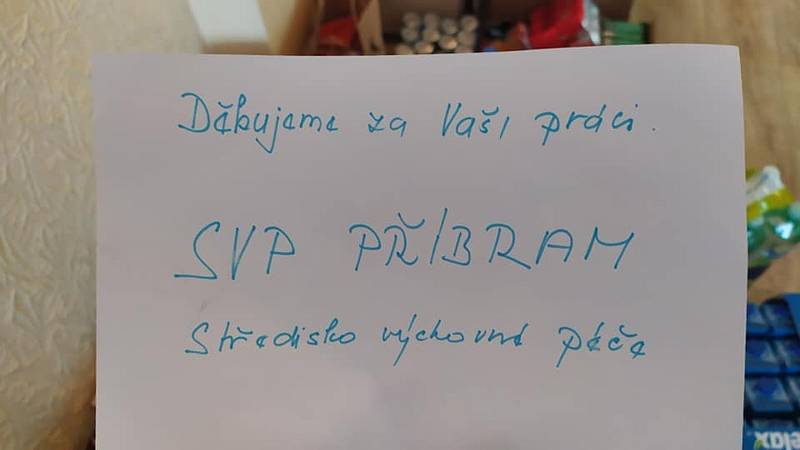 Děkujeme za Vaši práci.
SVP PŘÍBRAM
Středisko výchovné péče
relax